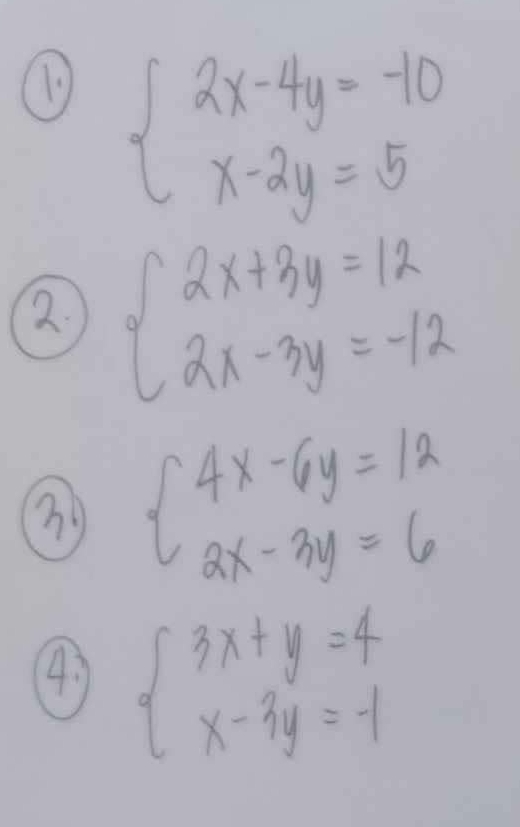 1. 2x-4y = -10
x-2y = 5
2. 2x+3y = 12
2x-3y = -12
3. 4x-6y = 12
2x-3y = 6
4. 3x+y = 4
x-3y = -1